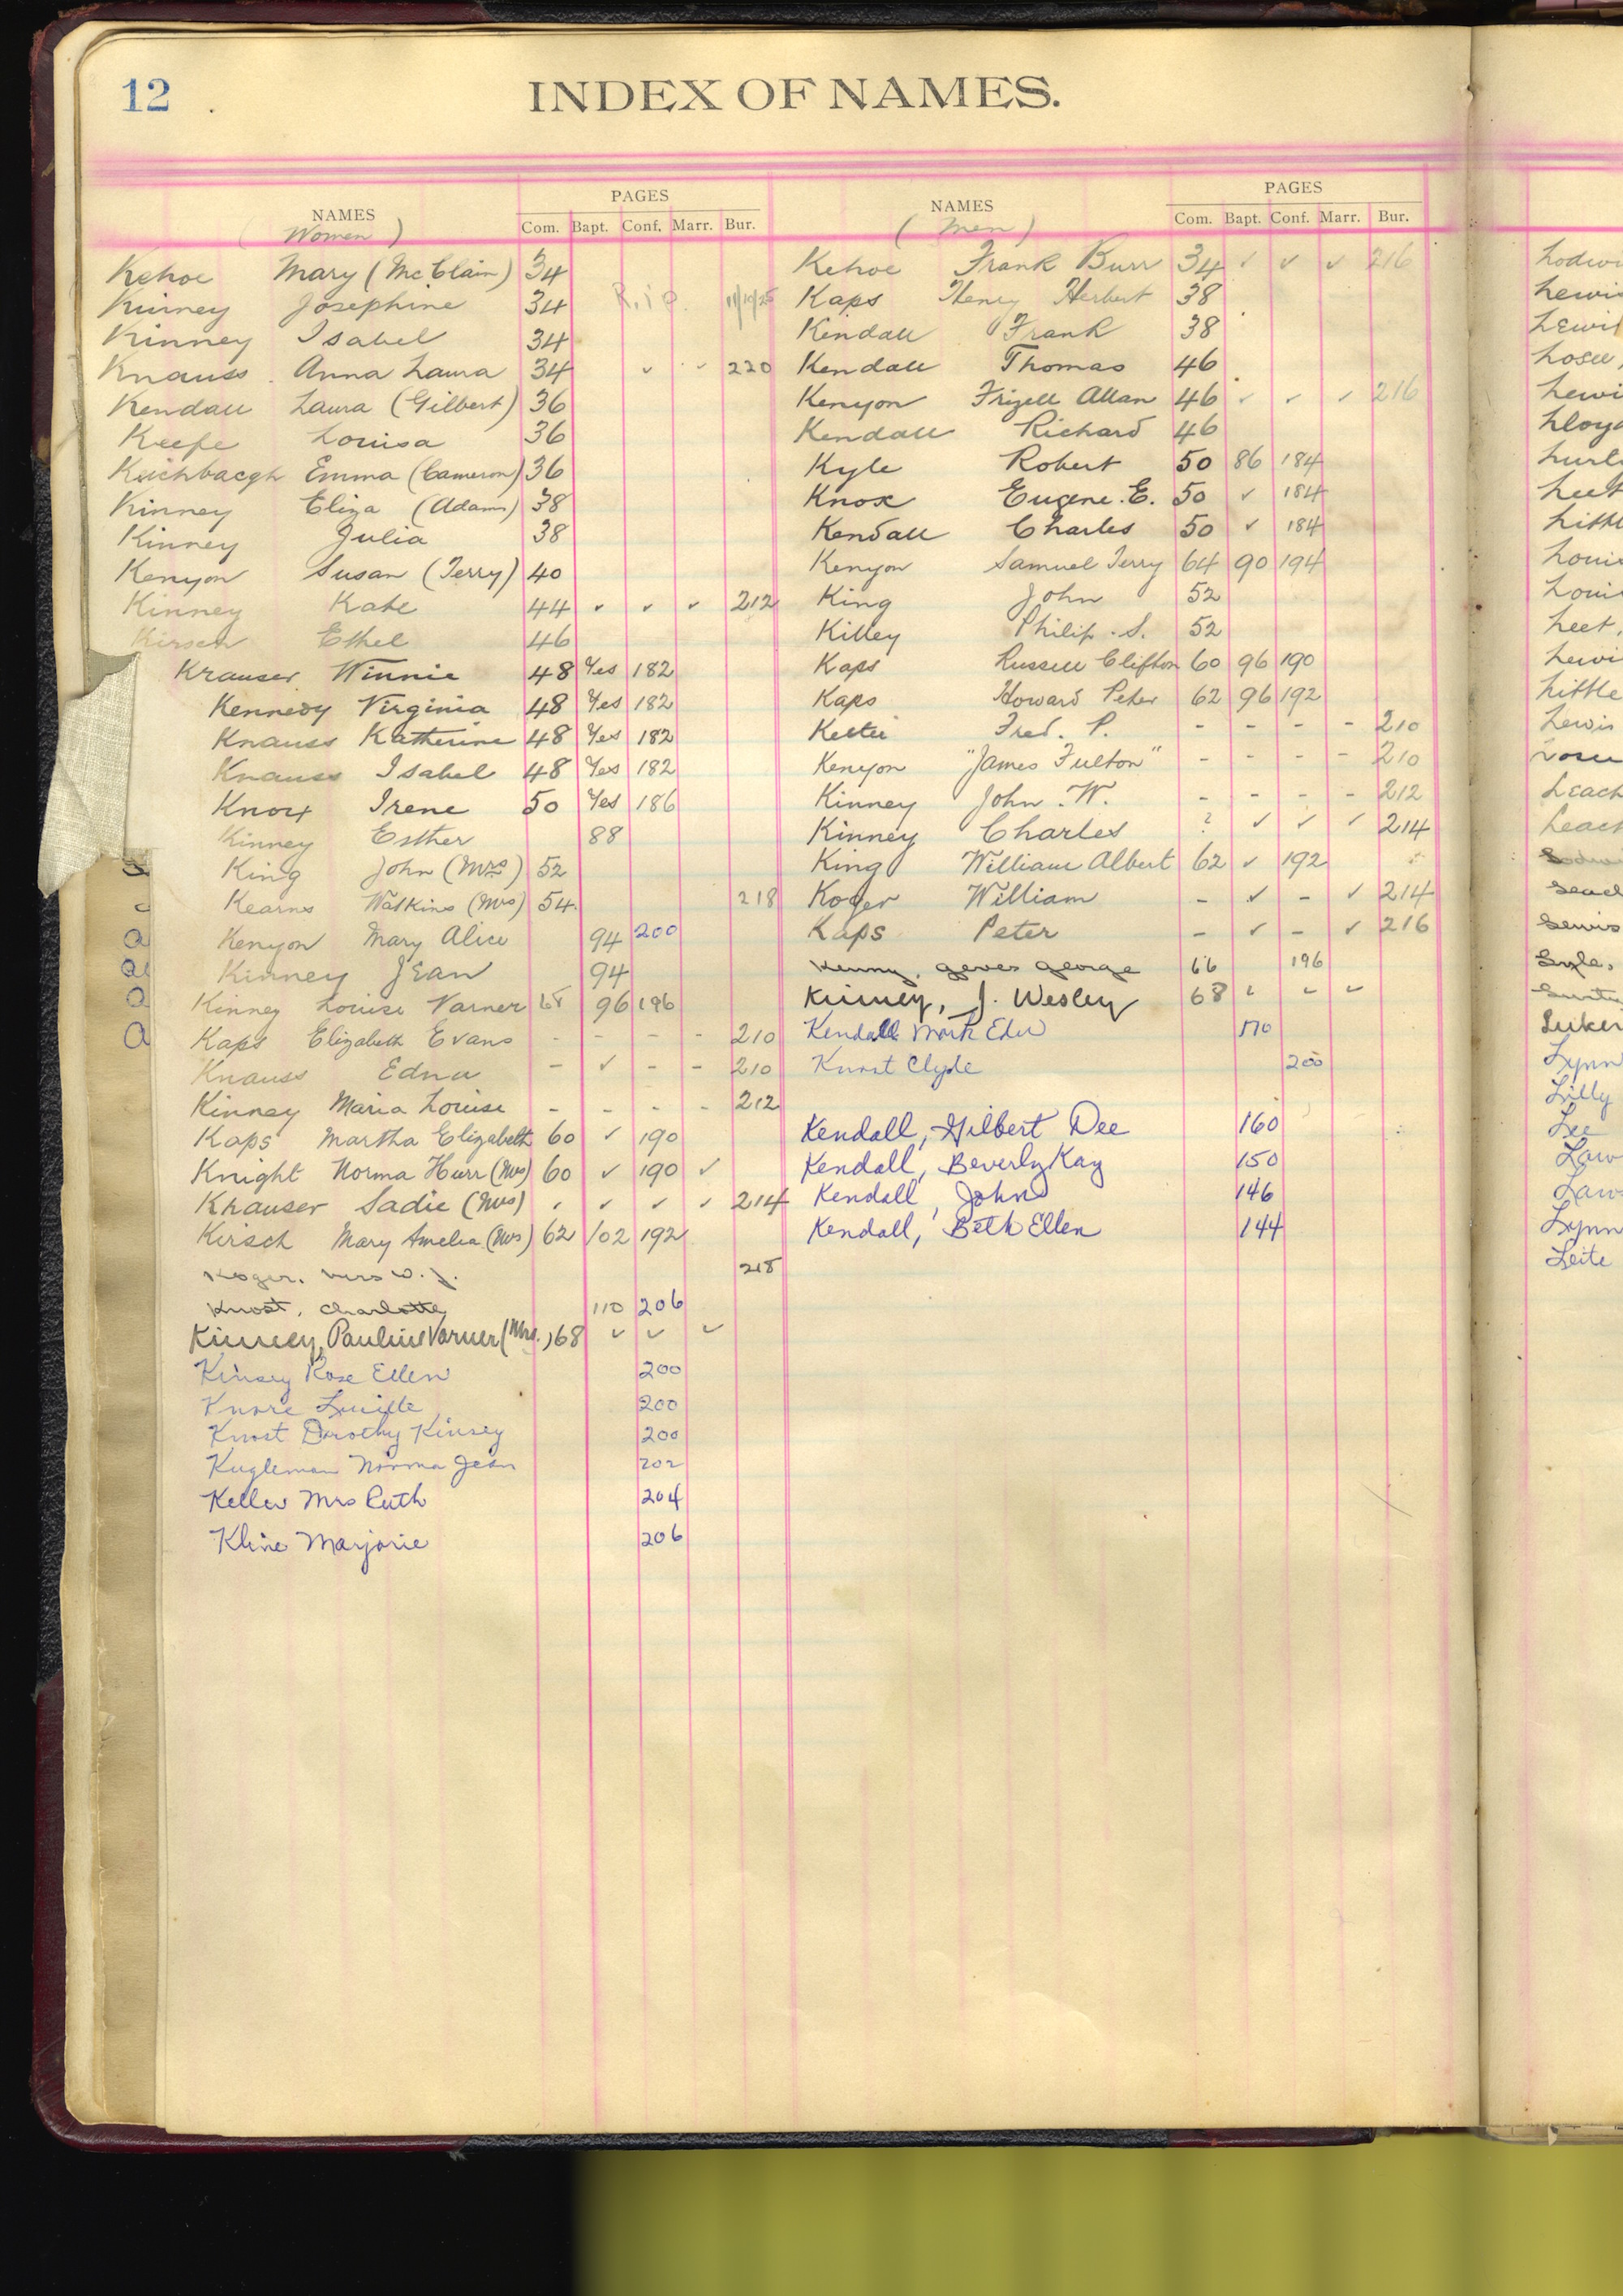 12
INDEX OF NAMES.
NAMES
(Women)
PAGES
Com. Bapt. Conf. Marr. Bur.
Kehoe Mary (McClain) 34
Kinney Josephine 34 R.i.p. 11/10/25
Kinney Isabel 34
Knauss Anna Laura 34 ✓ ✓ 220
Kendall Laura (Gilbert) 36
Keefe Louisa 36
Emma (Cameron) 36
Kinney Eliza (Adams) 38
Kinney Julia 38
Kenyon Susan (Terry) 40
Kinney Kate 44 ✓ ✓ ✓ 212
Kirsch Ethel 46
Krauser Winnie 48 Yes 182
Kennedy Virginia 48 Yes 182
Knauss Katherine 48 Yes 182
Knauss Isabel 48 Yes 182
Knox Irene 50 Yes 186
Kinney Esther 88
King John (Mrs) 52
Kearns Watkins (Mrs) 54 218
Kenyon Mary Alice 94 200
Kinney Jean 94
Kinney Louise Varner 68 96 196
Kaps Elizabeth Evans - - - - 210
Knauss Edna - ✓ - - 210
Kinney Maria Louise - - - - 212
Kaps Martha Elizabeth 60 ✓ 190
Knight Norma Hurr (Mrs) 60 ✓ 190 ✓
Krauser Sadie (Mrs) ✓ ✓ ✓ ✓ 214
Kirsch Mary Amelia (Mrs) 62 102 192
Koger, Mrs W. J. 218
Knost, Charlotte 110 206
Kinney, Pauline Varner (Mrs.) 68 ✓ ✓ ✓
Kinsey Rose Ellen 200
Lucille 200
Knost Dorothy Kinsey 200
Kugleman Norma Jean 202
Keller Mrs Ruth 204
Kline Marjorie 206
NAMES
(Men)
PAGES
Com. Bapt. Conf. Marr. Bur.
Kehoe Frank Burr 34 ✓ ✓ ✓ 216
Kaps Henry Herbert 38
Kendall Frank 38
Kendall Thomas 46
Kenyon Frizell Allan 46 ✓ ✓ ✓ 216
Kendall Richard 46
Kyle Robert 50 86 184
Knox Eugene. E. 50 ✓ 184
Kendall Charles 50 ✓ 184
Kenyon Samuel Terry 64 90 194
King John 52
Killey Philip. S. 52
Kaps Russell Clifton 60 96 190
Kaps Howard Peter 62 96 192
Fred. P. - - - - 210
Kenyon "James Fulton" - - - - 210
Kinney John W. - - - - 212
Kinney Charles ? ✓ ✓ ✓ 214
King William Albert 62 ✓ 192
Koger William - ✓ - ✓ 214
Kaps Peter - ✓ - ✓ 216
George 66 196
Kinney, J. Wesley 68 ✓ ✓ ✓
Kendall Mark Edw 170
Knost Clyde 200
Kendall, Gilbert Dee 160
Kendall, Beverly Kay 150
Kendall, John 146
Kendall, Beth Ellen 144